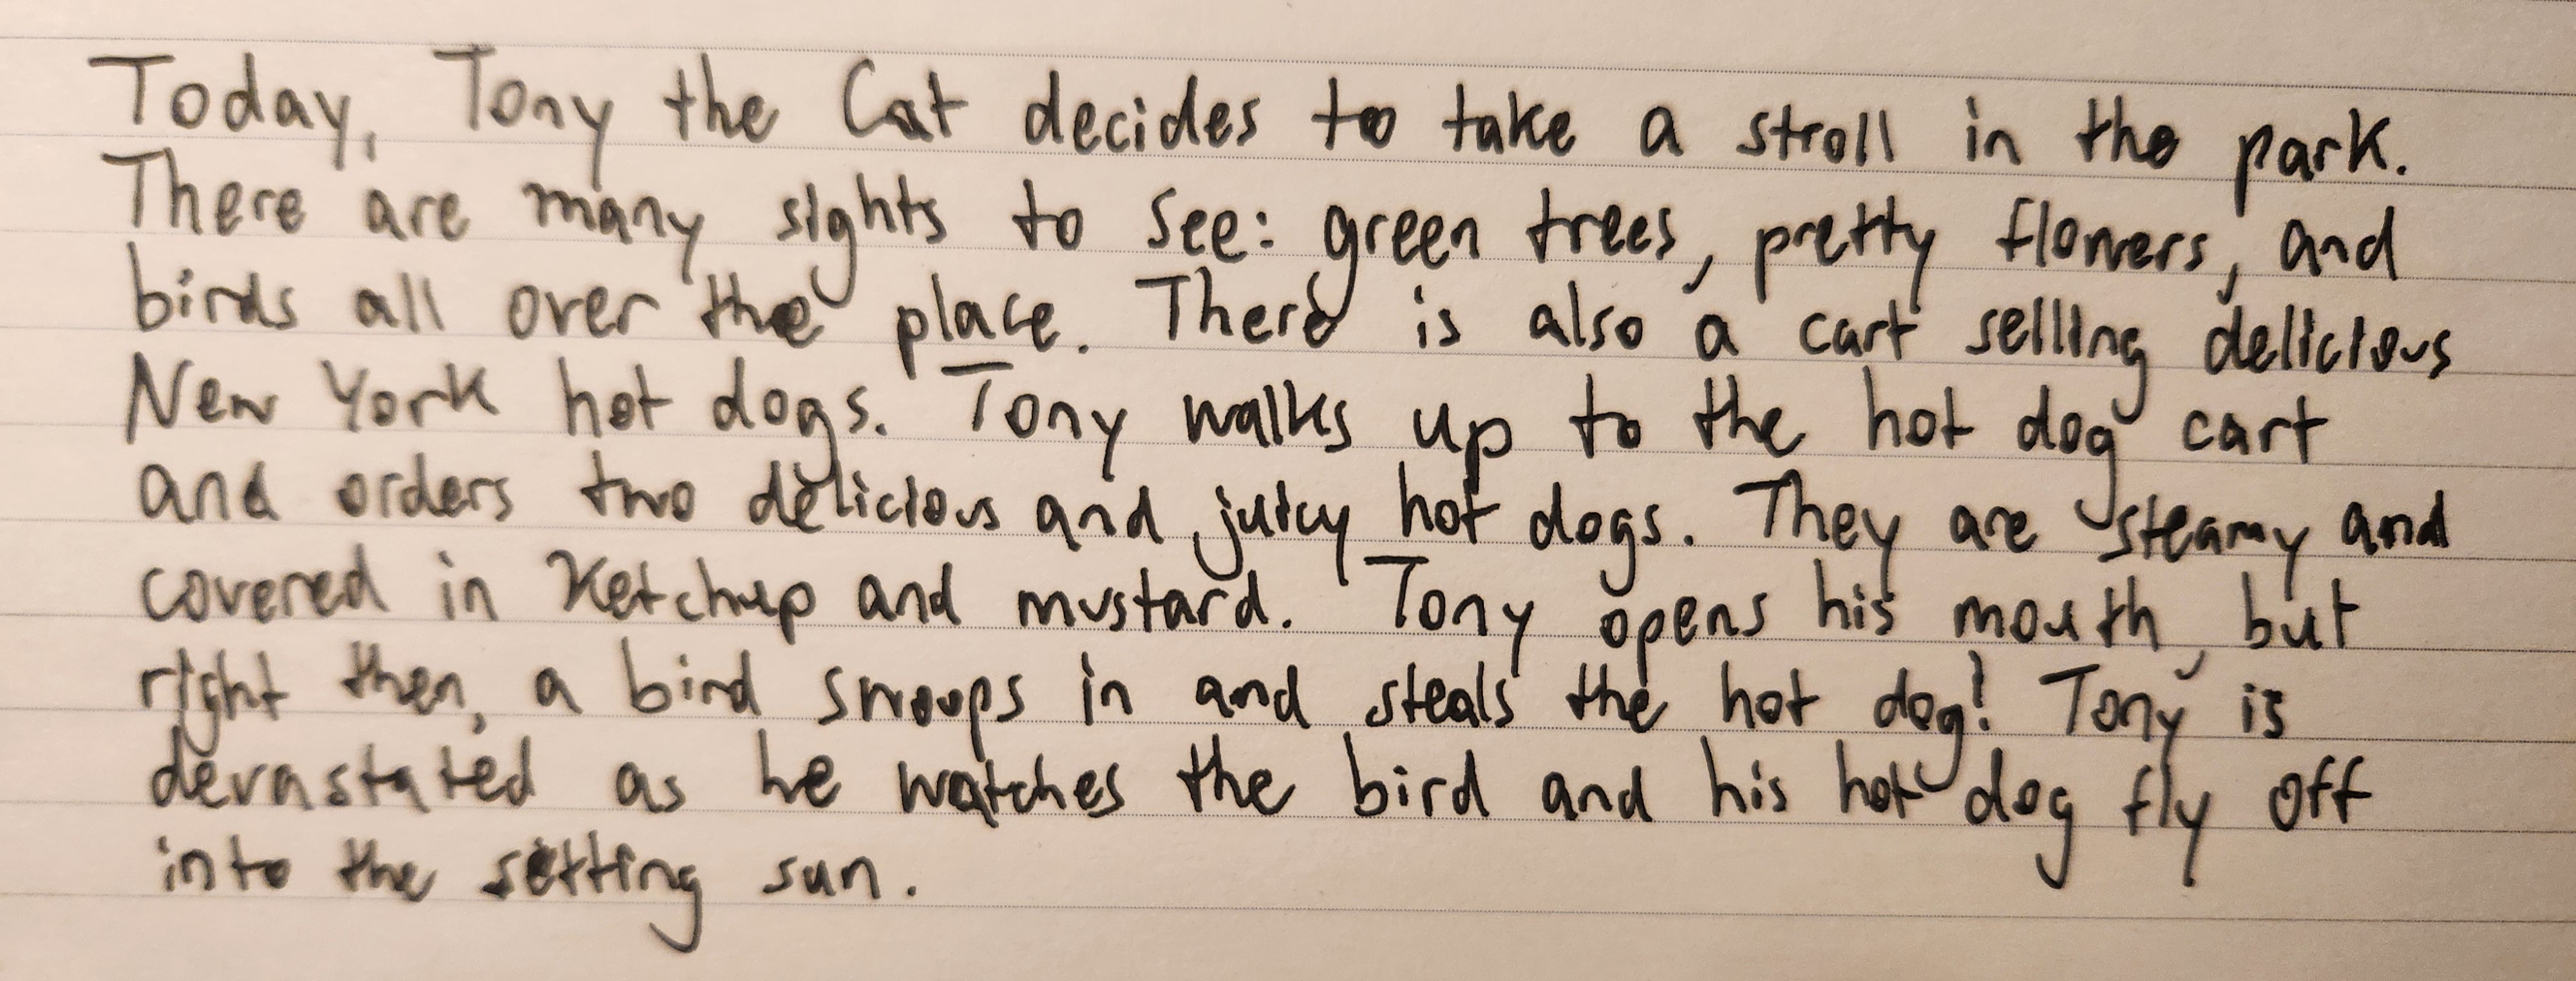 Today, Tony the Cat decides to take a stroll in the park.
There are many sights to see: green trees, pretty flowers, and
birds all over the place. There is also a cart selling delicious
New York hot dogs. Tony walks up to the hot dog cart
and orders two delicious and juicy hot dogs. They are steamy and
covered in ketchup and mustard. Tony opens his mouth, but
right then, a bird swoops in and steals the hot dog! Tony is
devastated as he watches the bird and his hot dog fly off
into the setting sun.